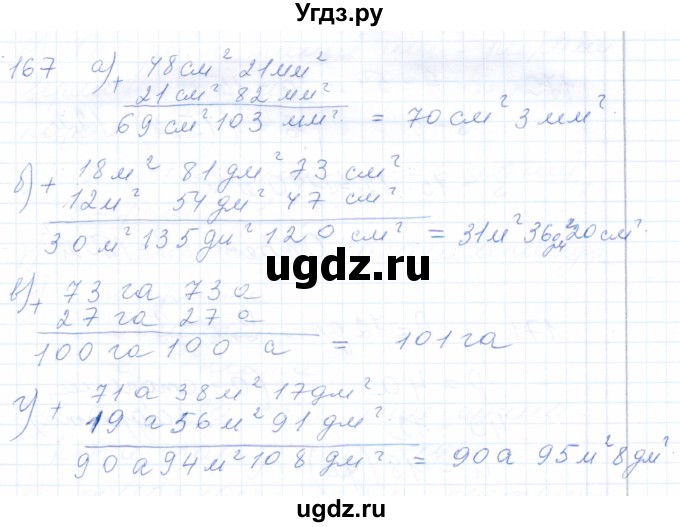 Угдз.ру
167 а) + 48 см² 21 мм²
21 см² 82 мм²
69 см² 103 мм² = 70 см² 3 мм².
б) + 18 м² 81 дм² 73 см²
12 м² 54 дм² 47 см²
30 м² 135 дм² 120 см² = 31 м² 36 дм² 20 см².
ugdz.ru
в) + 73 га 73 а
27 га 27 а
100 га 100 а = 101 га
г) + 71 а 38 м² 17 дм²
19 а 56 м² 91 дм².
90 а 94 м² 108 дм². = 90 а 95 м² 8 дм².
ugdz.ru